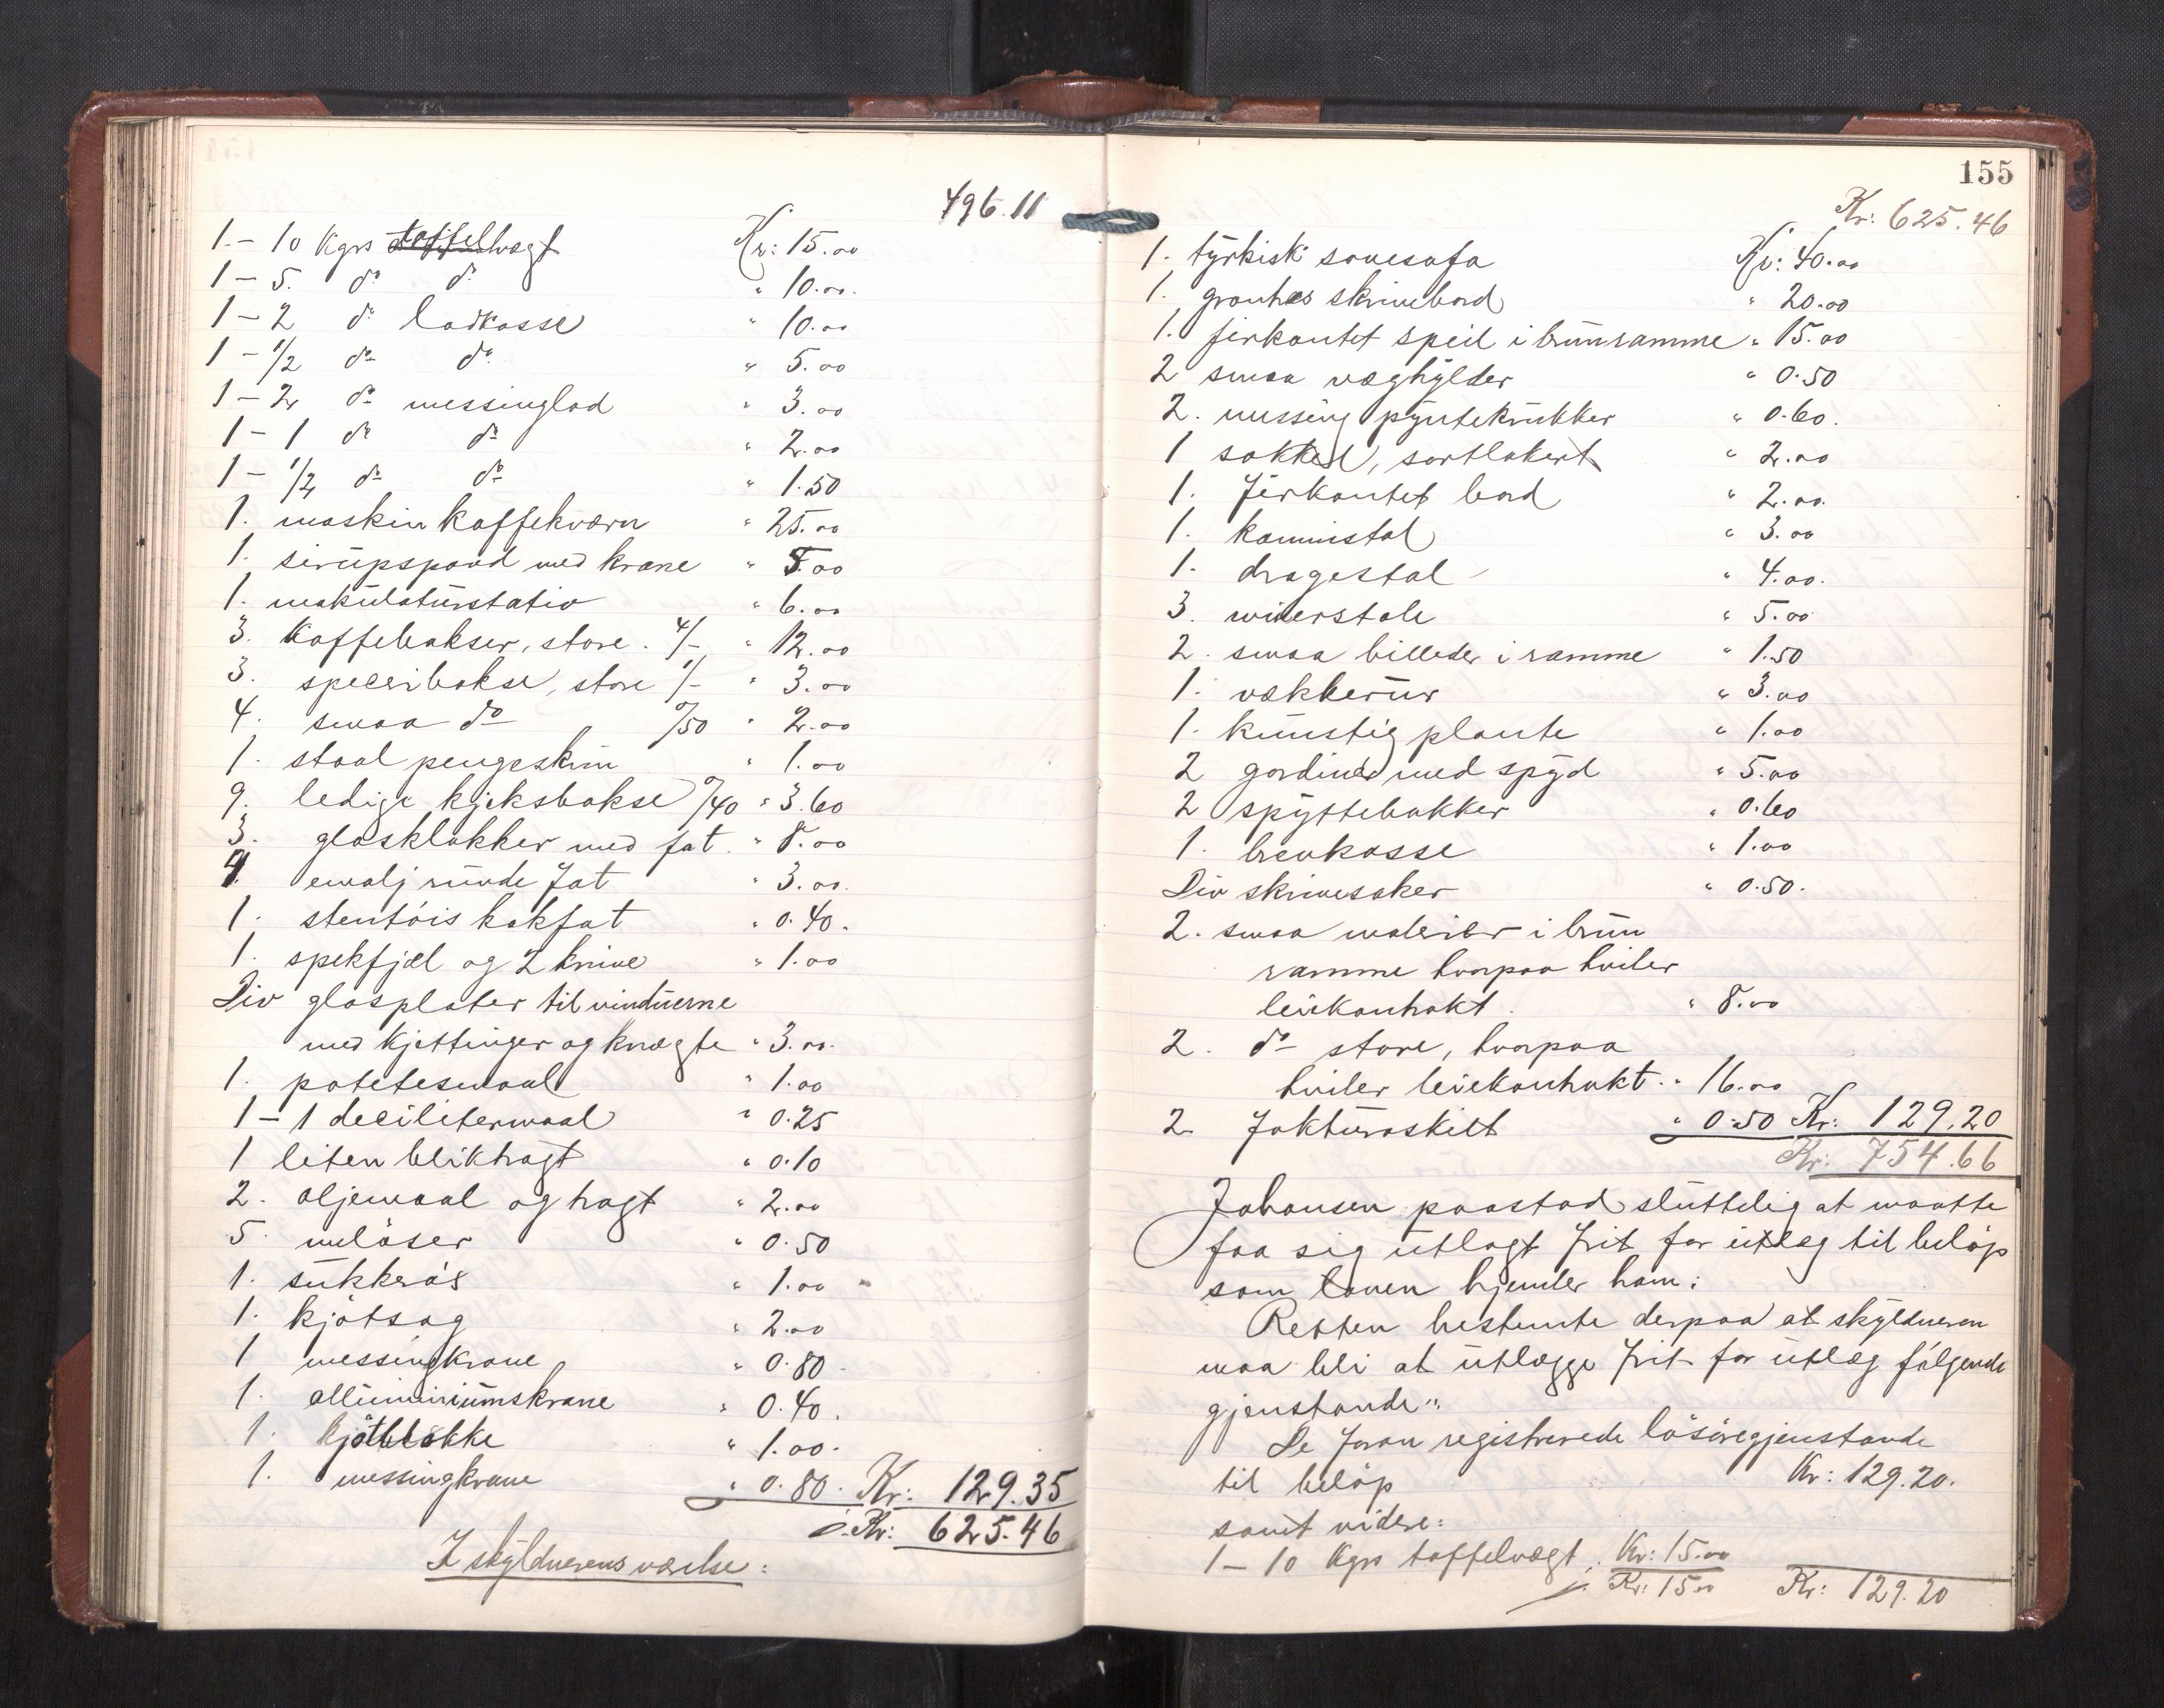 496.11
1. – 10 Kgrs taffelvegt Kr: 15.00
1 – 5. do do " 10.00.
1 – 2 do lodkasse " 10.00
1 – 1/2 do do " 5.00
1 – 2 do messinglod " 3.00
1 – 1 do do " 2.00
1 – 1/2 do do " 1.50
1. maskin kaffekværn " 25.00
1. sirupspand med krane " 5.00
1. makulaturstativ " 6.00
3. Kaffebokser, store. 4/- " 12.00
3. speceribokse, store 1/- " 3.00
4. smaa do 0/50 " 2.00
1. staal pengeskrin " 1.00
9. ledige kjeksbokse 0/40 " 3.60
3. glasklokker med fat. " 8.00
4. emalj runde fat " 3.00.
1. stentöis kakfat " 0.40.
1. spekfjæl og 2 knive " 1.00
Div glasplater til vinduerne
med kjettinger og knægte " 3.00.
1. potetesmaal " 1.00
1 – 1 decilitermaal " 0.25
1 liten bliktragt " 0.10
2. oljemaal og tragt " 2.00
5. melöser " 0.50
1. sukkerös " 1.00
1. kjötsag " 2.00
1 messingkrane " 0.80
1. alluminiumskrane " 0.40.
1. kjötblokke " 1.00.
1. messingkrane " 0.80. Kr: 129.35
Kr: 625.46
I skyldnerens værelse:
155
Kr: 625.46
1. tyrkisk sovesofa Kr: 40.00
1. skrivebord " 20.00
1. firkantet speil i brunramme " 15.00
2 smaa væghylder " 0.50
2. messing pyntekrukker " 0.60.
1 sokkel, sortlakert " 2.00
1. firkantet bord " 2.00.
1. kaministol " 3.00
1. dragestol " 4.00.
3. wienerstole " 5.00
2. smaa billeder i ramme " 1.50
1. vækkerur " 3.00
1. kunstig plante " 1.00
2 gardiner med spyd " 5.00
2 spyttebakker " 0.60
1. brevkasse " 1.00
Div skrivesaker " 0.50.
2. smaa malerier i brun
ramme hvorpaa hviler
leiekontrakt. " 8.00
2. do store, hvorpaa
hviler leiekontrakt. " 16.00
2 fakturaskilt " 0.50 Kr: 129.20
Kr: 754.66
Johansen paastod sluttelig at maatte
faa sig utlagt frit for utlæg til belöp
som loven hjemler ham:
Retten bestemte derpaa at skyldneren
maa bli at utlægge frit for utlæg fölgende
gjenstande":
De foran registrerede lösöregjenstande
til belöp Kr: 129.20.
samt videre:
1 – 10 Kgrs taffelvægt. Kr: 15.00
Kr: 15.00 Kr: 129.20